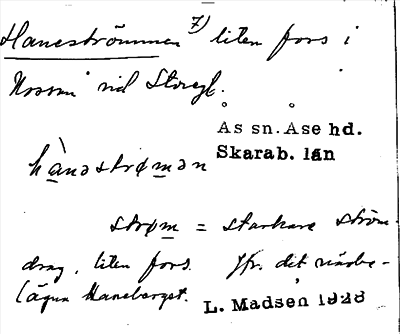 Haneströmmen 7) liten fors i
Nossan vid Storegl.
Ås sn. Åse hd.
Skarab. län
hànəstrømən
strøm = starkare ström-
drag, liten fors. Jfr. det närbe-
lägna Haneberget.
L. Madsen 1928